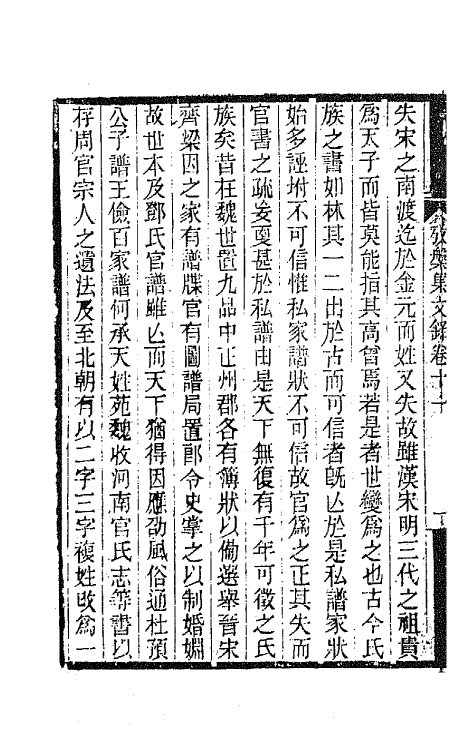 失宋之南渡迄於金元而姓又失故雖漢宋明三代之祖貴
爲太子而皆莫能指其高曾焉若是者世變爲之也古今氏
族之書如林其一二出於古而可信者旣亾於是私譜家狀
始多誣坿不可信惟私家譜狀不可信故官爲之正其失而
官書之疏妄更甚於私譜由是天下無復有千年可徵之氏
族矣昔在魏世置九品中正州郡各有簿狀以僃選舉晉宋
齊梁因之家有譜牒官有圖譜局置郎令史掌之以制婚姻
故世本及鄧氏官譜雖亾而天下猶得因應劭風俗通杜預
公子譜王儉百家譜何承天姓苑魏收河南官氏志等書以
存周官宗人之遺法及至北朝有以二字三字複姓改爲一
攷槃集文錄卷十